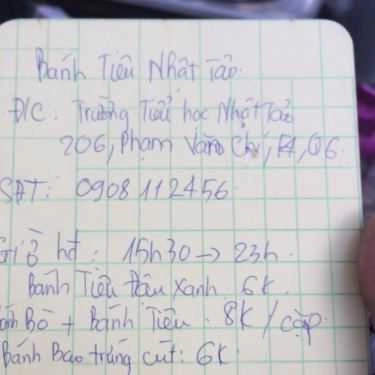 Bánh Tiêu Nhật Tảo.
Đ/C. Trường Tiểu học Nhật Tảo
206, Phạm Văn Chí, F4, Q6.
SĐT: 0908 112456
Giờ hđ: 15h30 → 23h.
Bánh Tiêu đậu xanh. 6K.
Bò + Bánh Tiêu. 8K / cặp.
Bánh Bao trứng cút: 6K